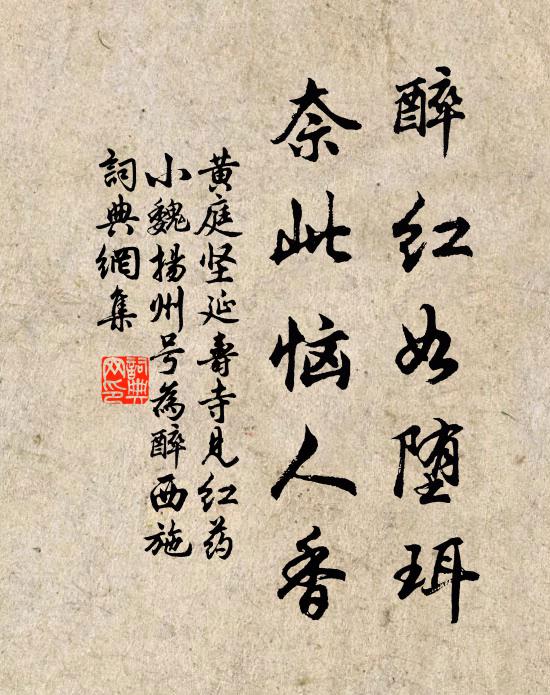 醉红如堕珥
奈此恼人香
黄庭坚延寿寺见红药
小魏扬州号為醉西施
詞典網集
詞典
网印